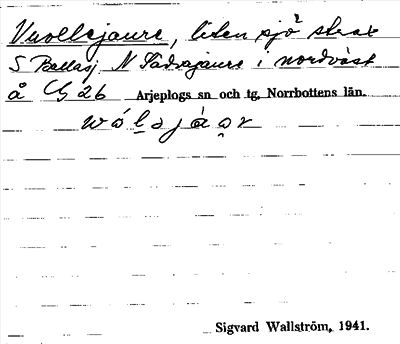 Vuollejaure, liten sjö strax
S Ballasj N Tådrajaure i nordväst
å Cg 26 Arjeplogs sn och tg, Norrbottens län.
wólɔjáɔr
Sigvard Wallström, 1941.